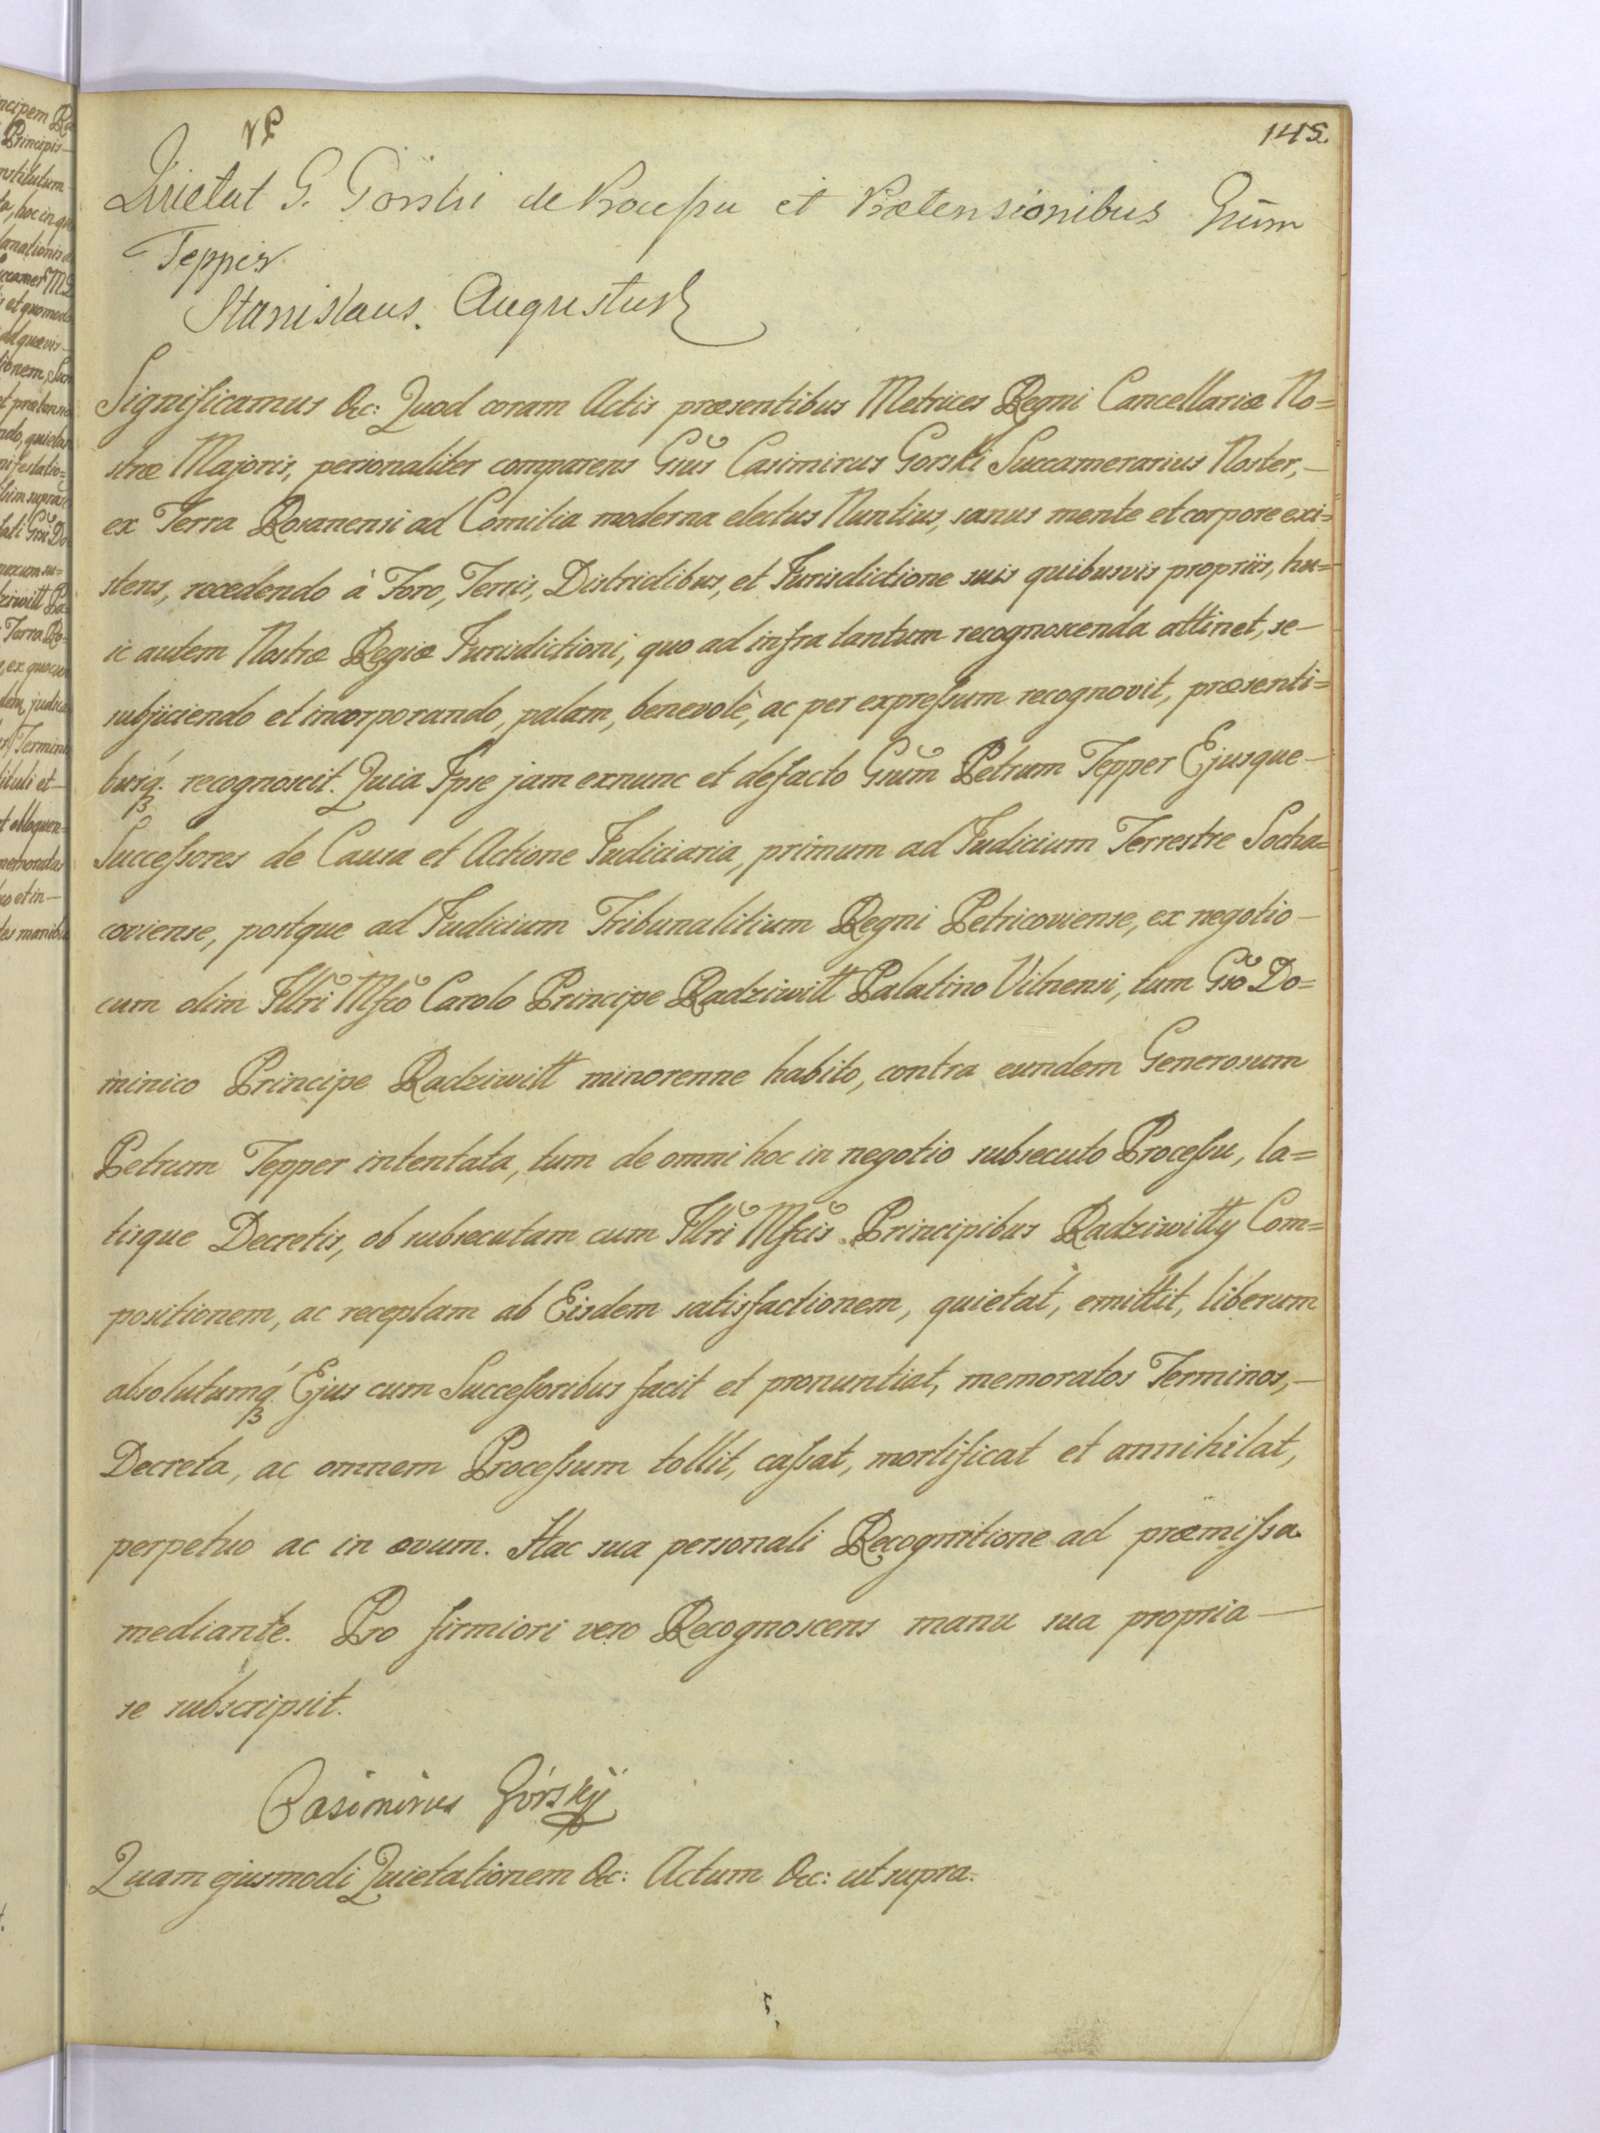 145.
Quietat G. Gorski de Processu et Prætensionibus Gsum
Tepper
Stanislaus Augustus
Significamus &c: Quod coram Actis præsentibus Metrices Regni Cancellariæ No=
stræ Majoris, personaliter comparens Gsus Casimirus Gorski Succamerarius Noster,—
ex Terra Rosanensi ad Comitia moderna electus Nuntius, sanus mente et corpore exi=
stens, recedendo à Foro, Terris, Districtibus, et Jurisdictione suis quibusvis propriis, hu=
ic autem Nostræ Regiæ Jurisdictioni, quo ad infra tantum recognoscenda attinet, se—
subjiciendo et incorporando, palam, benevolè, ac per expreſsum recognovit, præsenti=
busq́. recognoscit. Quia Ipse jam exnunc et defacto Gsum Petrum Tepper Ejusque—
Succeſsores de Causa et Actione Judiciaria, primum ad Judicium Terrestre Socha=
coviense, postque ad Judicium Tribunalitium Regni Petricoviense, ex negotio—
cum olim Illri Mfco Carolo Principe Radziwiłł Palatino Vilnensi, tum Gso Do=
minico Principe Radziwiłł minorenne habito, contra eundem Generosum
Petrum Tepper intentata, tum de omni hoc in negotio subsecuto Proceſsu, la=
tisque Decretis, ob subsecutam cum Illri Mfcis Principibus Radziwiłły Com=
positionem, ac receptam ab Eisdem satisfactionem, quietat, emittit, liberum
absolutumq́ Ejus cum Succeſsoribus facit et pronuntiat, memoratos Terminos,—
Decreta, ac omnem Proceſsum tollit, caſsat, mortificat et annihilat,
perpetuo ac in ævum. Hac sua personali Recognitione ad præmiſsa
mediante. Pro firmiori vero Recognoscens manu sua propria—
se subscripsit.
Casimirus Górskÿ
Quam ejusmodi Quietationem &c: Actum &c: ut supra.